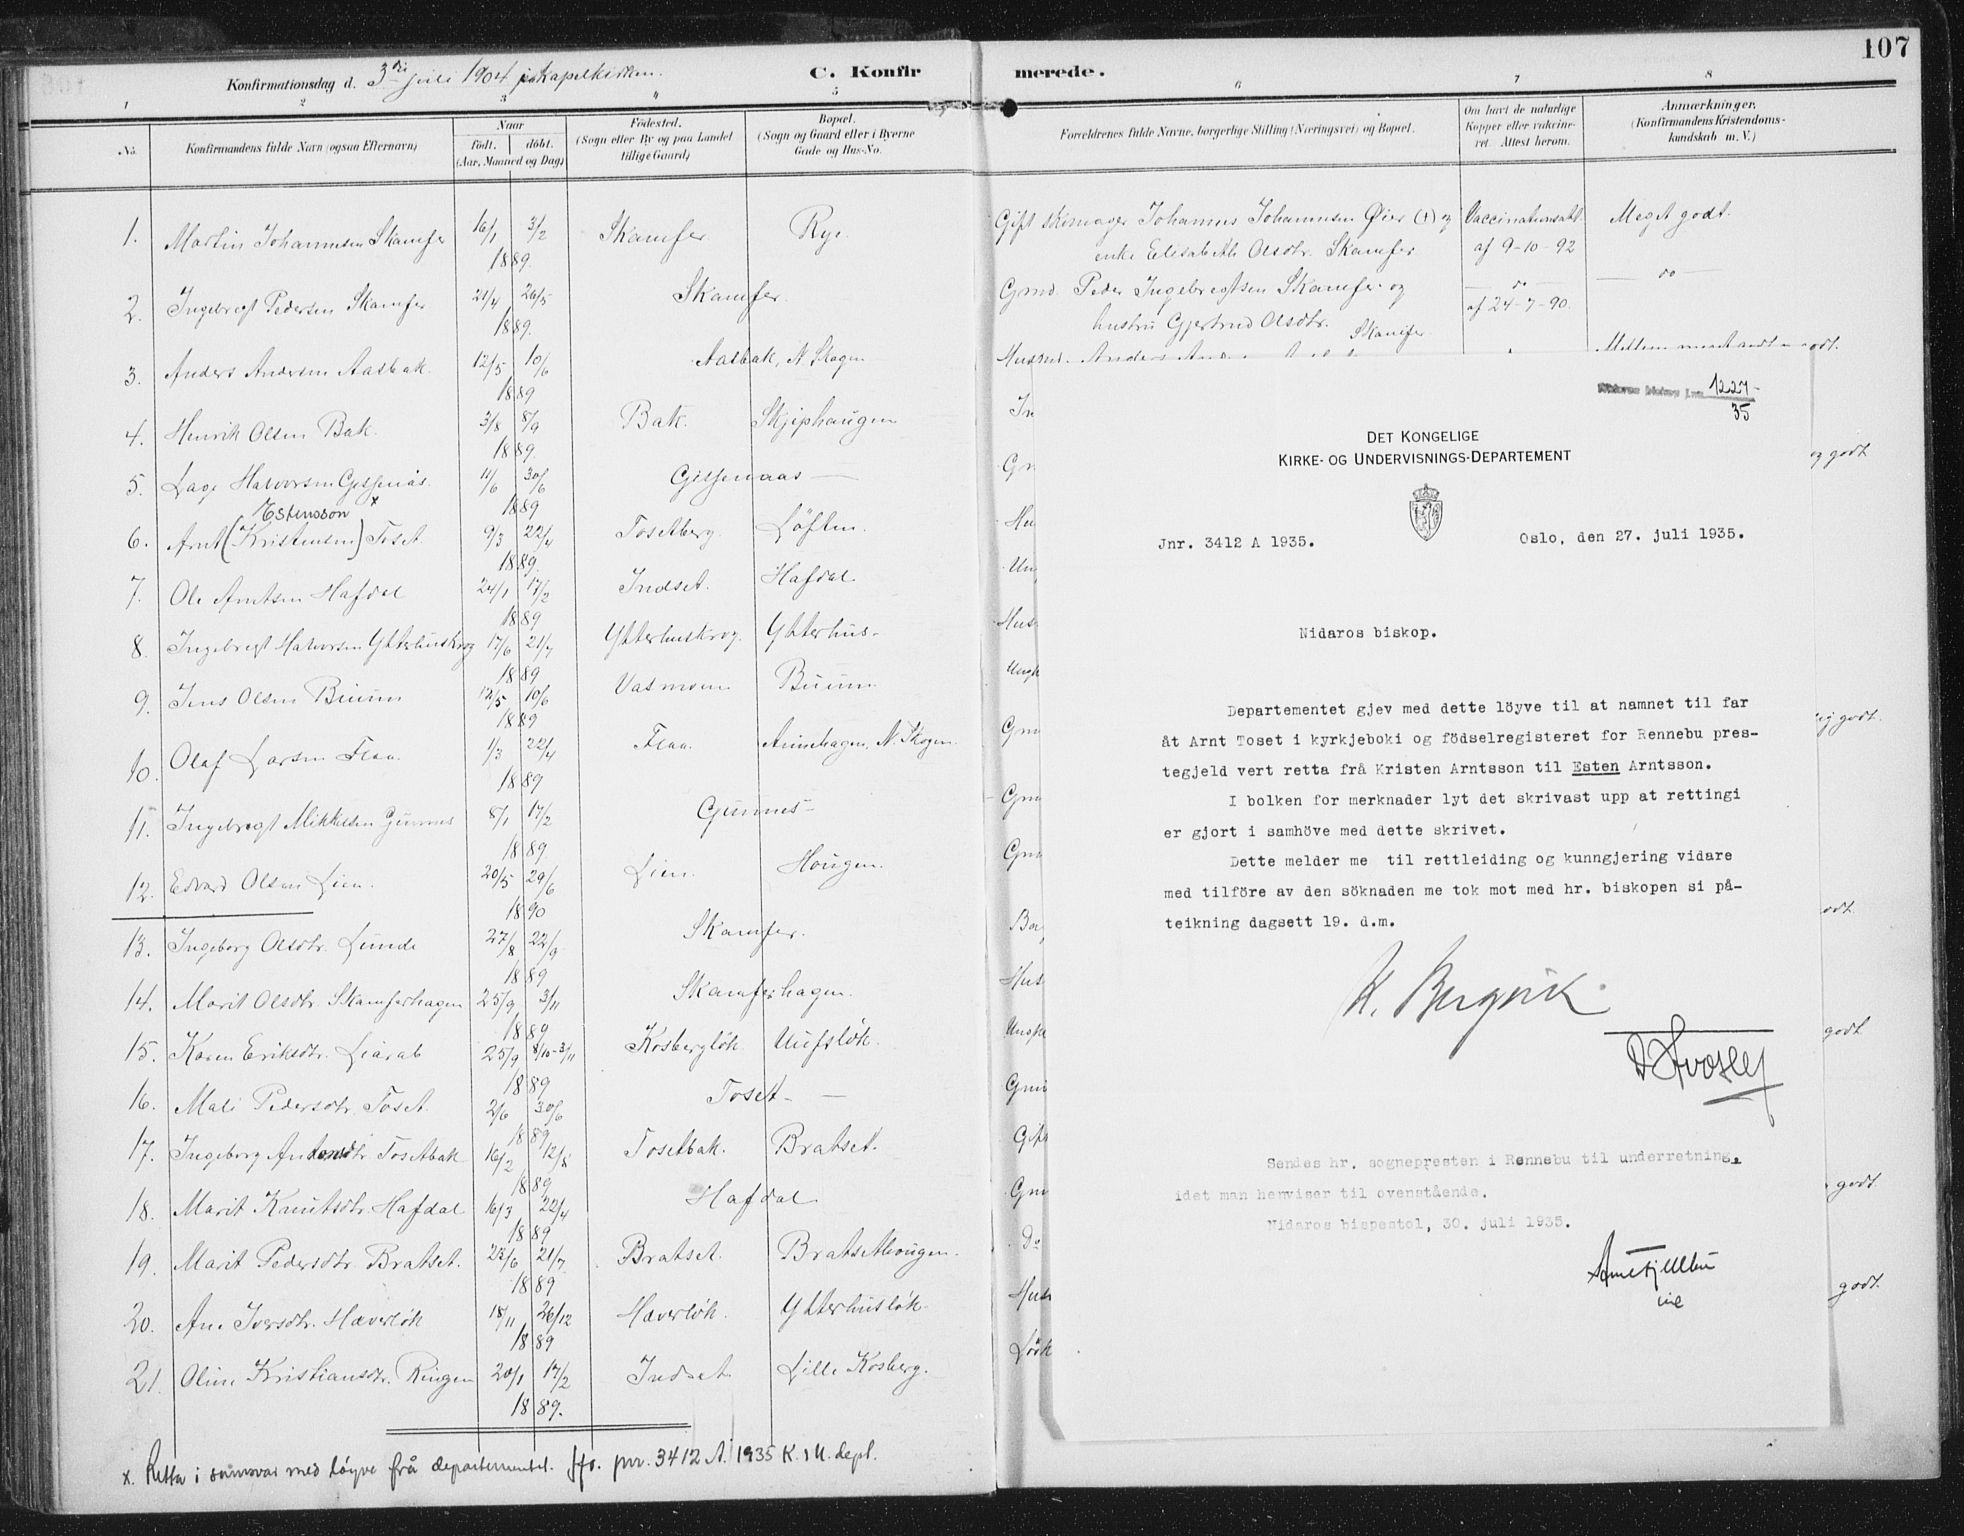 107
Konfirmationsdag d. 3die juli 1904 i kapelkirken.
C. Konfirmerede.
1 2 3 4 5 6 7 8
No.
Konfirmandens fulde Navn (ogsaa Efternavn)
Naar
födt. döbt.
(Aar, Maaned og Dag)
Födested.
(Sogn eller By og paa Landet
tillige Gaard)
Bopæl.
(Sogn og Gaard eller i Byerne
Gade og Hus-No.
Forældrenes fulde Navne, borgerlige Stilling (Næringsvei) og Bopæl.
Om havt de naturlige
Kopper eller vakcine-
ret. Attest herom.
Anmærkninger.
(Konfirmandens Kristendoms-
kundskab m. V.)
1. Martin Johannesen Skamfer 16/1 3/2 1889. Skamfer Rye. Gift skomager Johannes Johannesen Øier (†) og Vaccinationsatt. Meget godt.
enke Elisabeth Olsdtr. Skamfer af 9-10-92
2. Ingebregt Pedersen Skamfer 21/4 26/5 1889. Skamfer. Grmd. Peder Ingebregtsen Skamfer og — do — — do —
hustru Gjertrud Olsdtr. Skamfer af 24-7-90.
3. Anders Andersen Aasbak. 12/5 10/6 1889 Aasbak, N. Skogen Husmd. Anders
4. Henrik Olsen Bak. 3/8 8/9 1889. Bak. Skjiphaugen
5. Lage Halvorsen Gisnaas. 11/6 30/6 1889 Gisnaas —
Estensson x
6. Arnt (Kristensen) Toset 9/3 22/4 1889. Tosetberg Løften.
7. Ole Arntsen Hafdal 24/1 17/2 1889 Indset. Hafdal
8. Ingebregt Halvorsen Ytterhuskrog 17/6 21/7 1889 Ytterhuskrog. Ytterhus-
9. Jens Olsen Buum 12/5 10/6 1889 Vasmoen Buum
10. Olaf Larsen Flaa. 1/3 22/4 1889 Flaa. N. Skogen.
11. Ingebregt Mikkelsen Gunnes 8/1 17/2 1889. Gunnes-
12. Edvard Olsen Lien. 20/5 29/6 1890 Lien. Hougen.
13. Ingeborg Olsdtr. Lunde 27/8 22/9 1889 Skamfer.
14. Marit Olsdtr. Skamferhagen 25/9 3/11 1889 Skamferhagen.
15. Karen Eriksdtr. Liarab 25/9 8/10-3/11 1889 Kosbergløk
16. Mali Pedersdtr. Toset 2/6 30/6 1889 Toset- —
17. Ingeborg Tosetbak 16/2 12/8 1889 Tosetbak. Bratset.
18. Marit Knutsdtr. Hafdal 16/3 22/4 1889 Hafdal
19. Marit Pedersdtr. Bratset. 23/6 21/7 1889 Bratset. Bratsethougen.
20. Ane Iversdtr. Hæverløk 18/11 26/12 1889 Hæverløk. Ytterhusløk
21. Oline Kristiansdtr. Ringen 20/1 17/2 1889. Indset Lille Kosberg.
x. Retta i samsvar med løyve frå departementet. jfr. jnr. 3412 A. 1935 K. og U. dept.
1227
35
DET KONGELIGE
KIRKE- OG UNDERVISNINGS-DEPARTEMENT
Jnr. 3412 A 1935.
Oslo, den 27. juli 1935.
Nidaros biskop.
Departementet gjev med dette löyve til at namnet til far
åt Arnt Toset i kyrkjeboki og födselregisteret for Rennebu pres-
tegjeld vert retta frå Kristen Arntsson til Esten Arntsson.
I bolken for merknader lyt det skrivast upp at rettingi
er gjort i samhöve med dette skrivet.
Dette melder me til rettleiding og kunngjering vidare
med tilföre av den söknaden me tok mot med hr. biskopen si på-
teikning dagsett 19. d.m.
K. Bergsvik
Sendes hr. sognepresten i Rennebu til underretning,
idet man henviser til ovenstående.
Nidaros bispestol, 30. juli 1935.
Arne Fjellbu